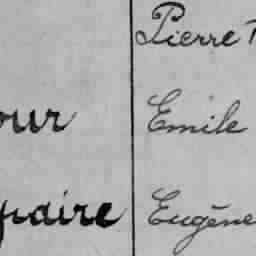 Pierre
our Emile
paire Eugène